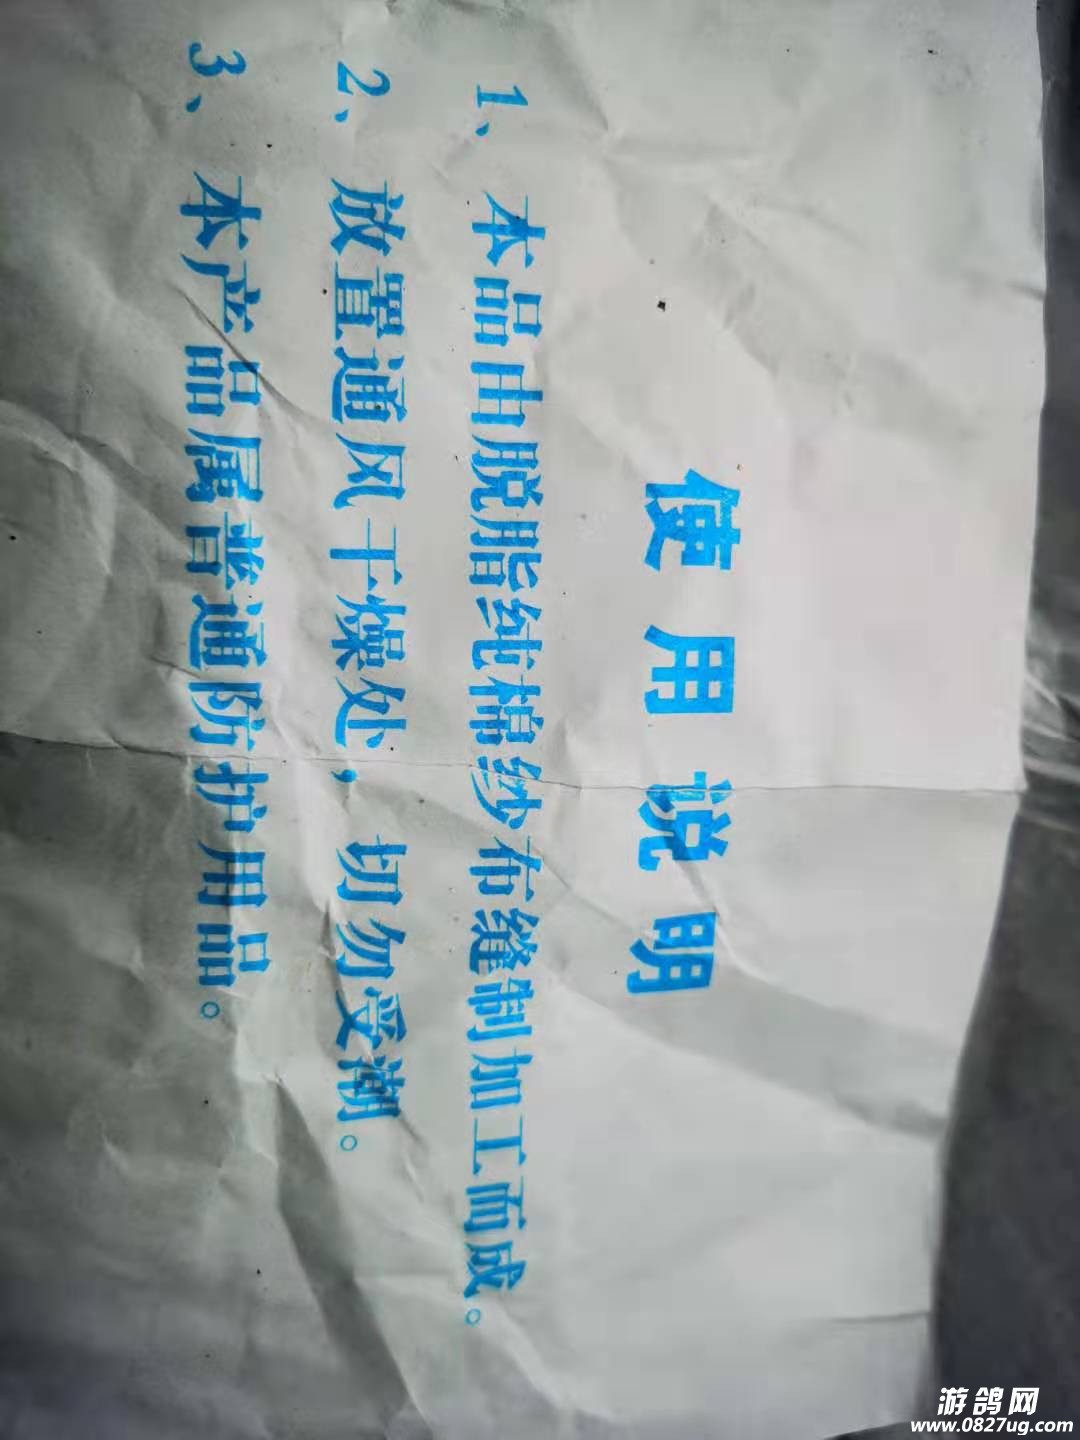 使用说明
1、本品由脱脂纯棉纱布缝制加工而成。
2、放置通风干燥处，切勿受潮。
3、本产品属普通防护用品。
游鸽网
www.0827ug.com